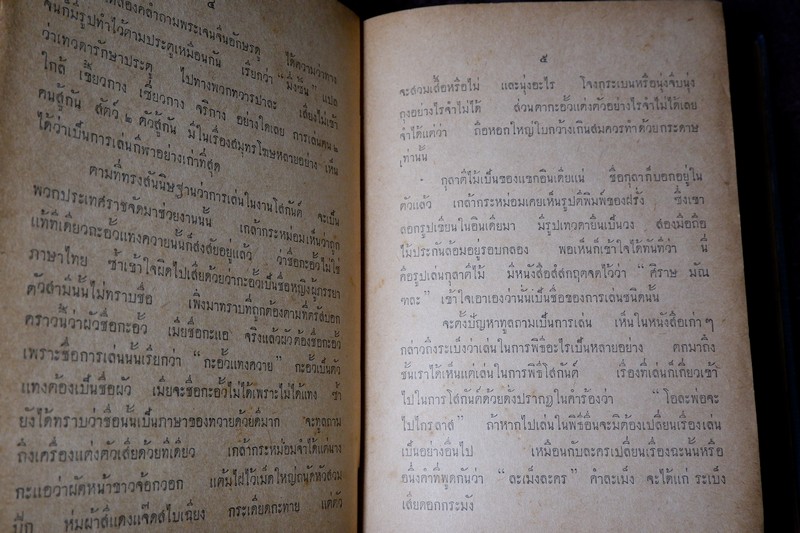 ๔
จีนก็มีรูปทำไว้ตามประตูเหมือนกัน เรียกว่า “มึ่งซิ้น” แปล
ว่าเทวดารักษาประตู ไปทางพวกทวารบาละ เสียงไม่เข้า
ใกล้ เซี่ยวกาง เซี่ยวกาง จริกาง อย่างใดเลย การเล่นคน ๒
คนสู้กัน สัตว์ ๒ ตัวสู้กัน มีในเรื่องสมุทรโฆษหลายอย่าง เห็น
ได้ว่าเป็นการเล่นกีฬาอย่างเก่าที่สุด
ตามที่ทรงสันนิษฐานว่าการเล่นในงานโสกันต์ จะเป็น
พวกประเทศราชจัดมาช่วยงานนั้น เกล้ากระหม่อมเห็นว่าถูก
แท้ทีเดียวกะอั้วแทงควายนั้นก็ส่งตัวอยู่แล้ว ว่าชื่อกะอั้วไม่ใช่
ภาษาไทย ซ้ำเข้าใจผิดไปเสียด้วยว่ากะอั้วเป็นชื่อหญิงผู้ภรรยา
ตัวสามีนั้นไม่ทราบชื่อ เพิ่งมาทราบที่ถูกต้องตามที่ตรัสบอก
คราวนี้ว่าผัวชื่อกะอั้ว เมียชื่อกะแอ จริงแล้วผัวต้องชื่อกะอั้ว
เพราะชื่อการเล่นนั้นเรียกว่า “กะอั้วแทงควาย” กะอั้วเป็นตัว
แทงต้องเป็นชื่อผัว เมียจะชื่อกะอั้วไม่ได้เพราะไม่ได้แทง ซ้ำ
ยังได้ทราบว่าชื่อนั้นเป็นภาษาของทวายด้วยดีมาก จะทูลถาม
ถึงเครื่องแต่งตัวเสียด้วยทีเดียว เกล้ากระหม่อมจำได้แต่นาง
กะแอว่าผัดหน้าขาวจ้อกวอก แต้มไฝไว้เม็ดใหญ่ถนัดหัวสวม
ปีก ห่มผ้าสีแดงแจ๊ดสไบเฉียง กระเดียดกะทาย แต่ตัว
๕
จะสวมเสื้อหรือไม่ และนุ่งอะไร โจงกระเบนหรือนุ่งจีบนุ่ง
ถุงอย่างไรจำไม่ได้ ส่วนตากะอั้วแต่งตัวอย่างไรจำไม่ได้เลย
จำได้แต่ว่า ถือหอกใหญ่ใบกว้างเกินสมควรทำด้วยกระดาษ
เท่านั้น
กุลาตีไม้เป็นของแขกอินเดียแน่ ชื่อกุลาก็บอกอยู่ใน
ตัวแล้ว เกล้ากระหม่อมเคยเห็นรูปตีพิมพ์ของฝรั่ง ซึ่งเขา
ลอกรูปเขียนในอินเดียมา มีรูปเทวดายืนเป็นวง สองมือถือ
ไม้ประกันล้อมอยู่รอบกลอง พอเห็นก็เข้าใจได้ทันทีว่า นี่
คือรูปเล่นกุลาตีไม้ มีหนังสือสํสกฤตจดไว้ว่า “คีราษ มัณ
ฑละ” เข้าใจเอาเองว่านั่นเป็นชื่อของการเล่นชนิดนั้น
จะตั้งปัญหาทูลถามเป็นการเล่น เห็นในหนังสือเก่า ๆ
กล่าวถึงระเบงว่าเล่นในการพิธีอะไรเป็นหลายอย่าง ตกมาถึง
ชั้นเราได้เห็นแต่เล่นในการพิธีโสกันต์ เรื่องที่เล่นก็เกี่ยวเข้า
ไปในการโสกันต์ด้วยดังปรากฏในคำร้องว่า “โอละพ่อจะ
ไปไกรลาส” ถ้าหากไปเล่นในพิธีอื่นจะมิต้องเปลี่ยนเรื่องเล่น
เป็นอย่างอื่นไป เหมือนกับละครเปลี่ยนเรื่องฉะนั้นหรือ
อนึ่งคำที่พูดกันว่า “ละเม็งละคร” คำละเม็ง จะได้แก่ ระเบ็ง
เสียดอกกระมัง